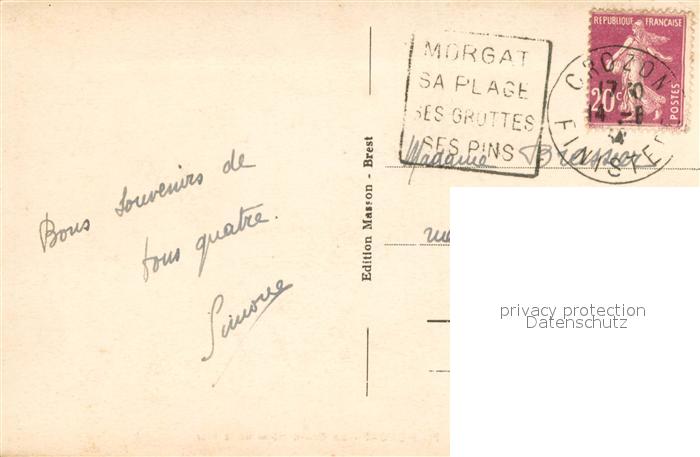 MORGAT
SA PLAGE
SES GROTTES
SES PINS
REPUBLIQUE FRANÇAISE
20c
POSTES
CROZON
FINISTERE
Bons souvenirs de
tous quatre.
Simone
Edition Masson - Brest
Madame
privacy protection
Datenschutz